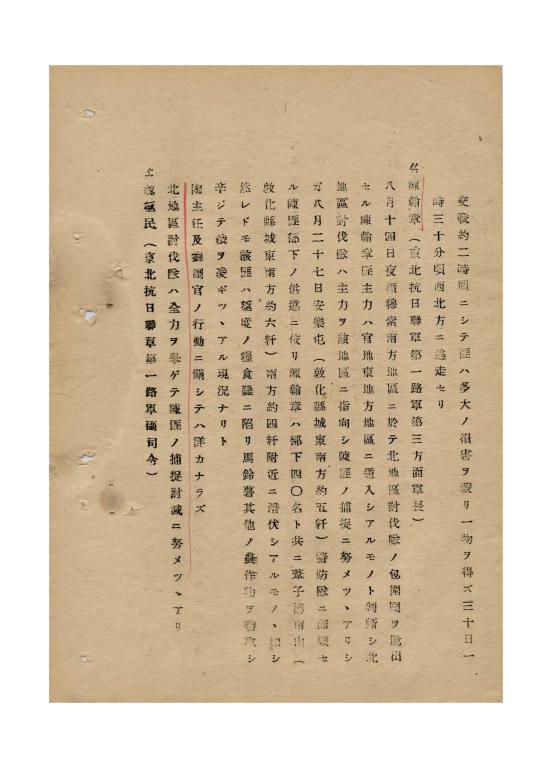 交戰約二時間ニシテ匪ハ多大ノ損害ヲ蒙リ一物ヲ得ズ三十日一
時三十分頃西北方ニ逃走セリ
陳翰章(東北抗日聯軍第一路軍第三方面軍長)
八月十四日夜頃穆索南方地區ニ於テ北地區討伐隊ノ包圍圈ヲ脫出
セル陳翰章匪主力ハ官地東地方地區ニ遁入シアルモノト判斷シ北
地區討伐隊ハ主力ヲ該地區ニ指向シ陳匪ノ捕捉ニ努メツヽアリシ
ガ八月二十七日安樂屯(敦化縣城東南方約五粁)警防隊ニ歸順セ
ル陳匪部下ノ供述ニ依リ陳翰章ハ部下四〇名ト共ニ葦子溝南山(
敦化縣城東南方約六粁)南方約四粁附近ニ潛伏シアルモノヽ如シ
然レドモ該匪ハ極度ノ糧食難ニ陷リ馬鈴薯其他ノ農作物ヲ窃取シ
辛ジテ飢ヲ凌ギツヽアル現況ナリト
主任及 官ノ行動ニ關シテハ詳カナラズ
北地區討伐隊ハ全力ヲ擧ゲテ陳匪ノ捕捉討滅ニ努メツヽアリ
魏極民(東北抗日聯軍第一路軍副司令)